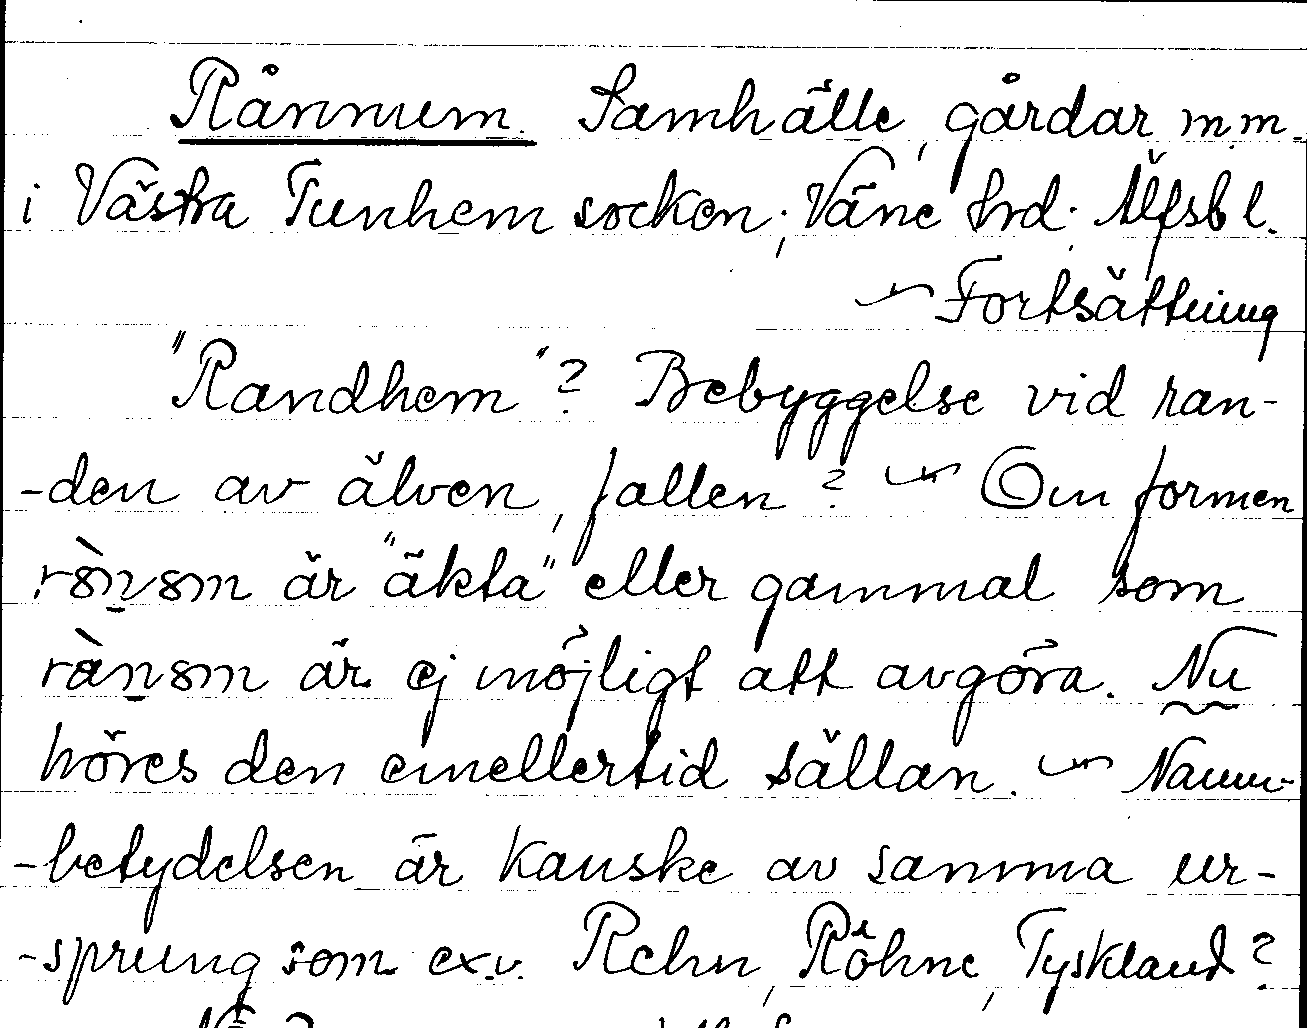 Rånnum. Samhälle, gårdar m.m.
i Västra Tunhem socken; Väne hrd. Älfsb l.
~ Fortsättning
"Randhem"? Bebyggelse vid ran-
-den av älven, fallen? ~ Om formen
är "äkta" eller gammal som
är ej möjligt att avgöra. Nu
höres den emellertid sällan. ~ Namn-
-betydelsen är kanske av samma ur-
-sprung som ex.v. Rehn, Röhne, Tyskland?